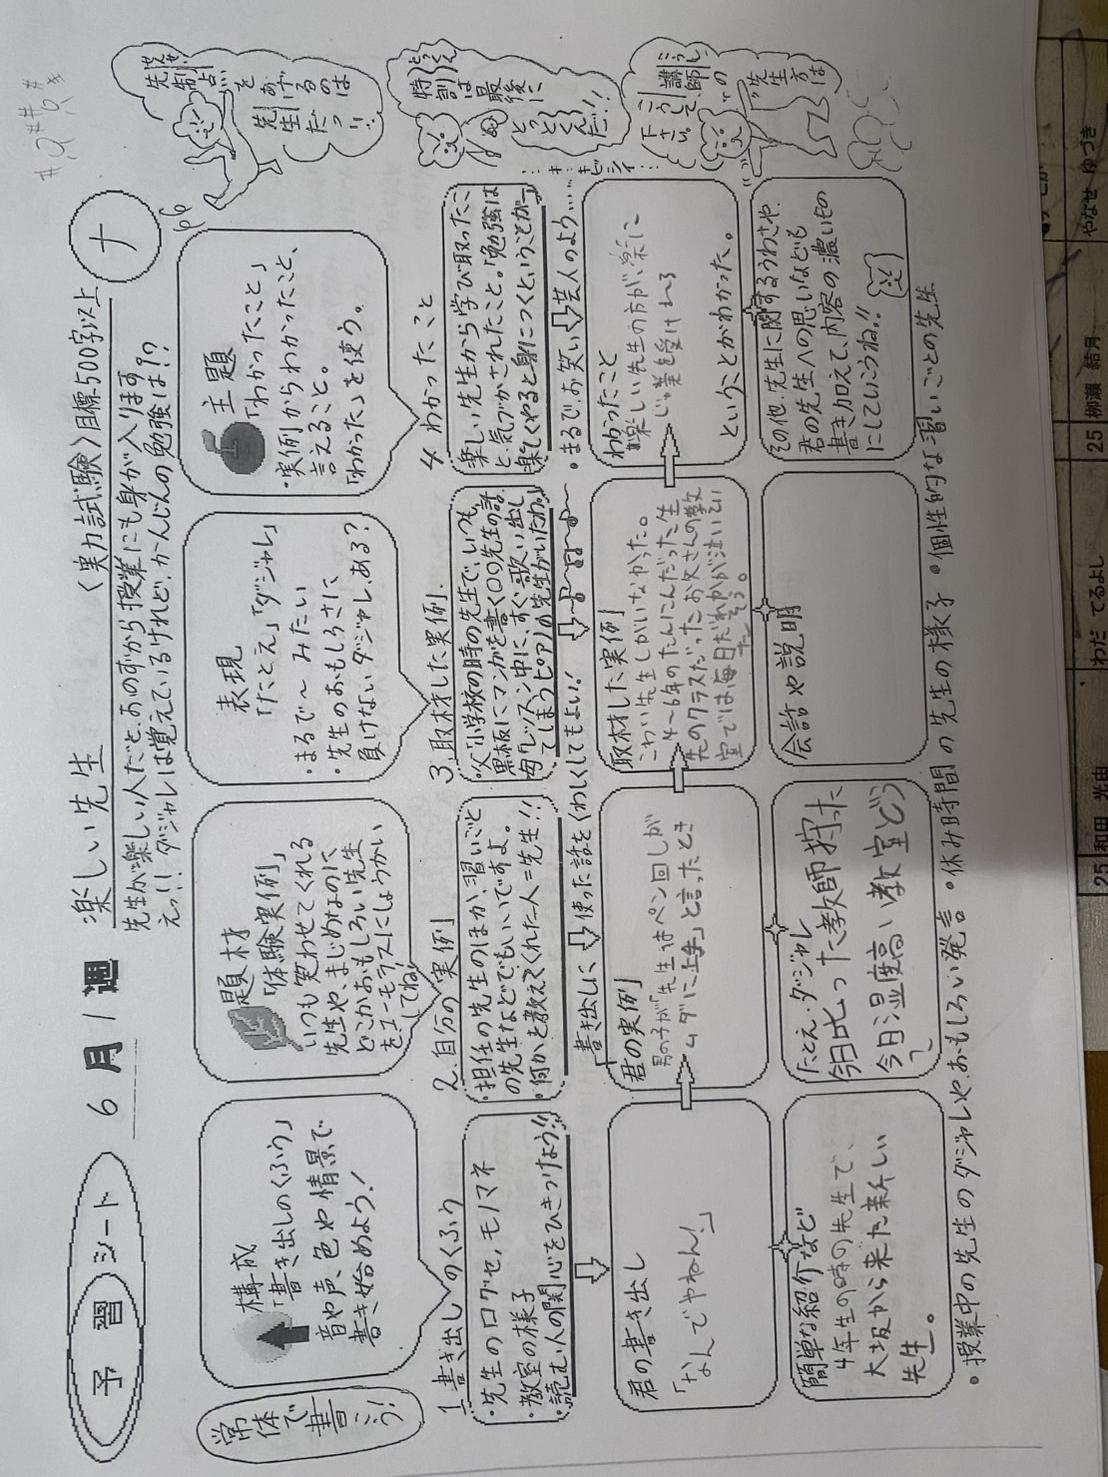 予習シート 6月1週 楽しい先生 〈実力試験〉目標500字以上 ナ
先生が楽しい人だと、おのずから授業にも身が入ります。
えっ!! ダジャレは覚えているけれど、かんじんの勉強は!?
常体で書こう!
構成
「書き出しのくふう」
音や声、色や情景で
書き始めよう!
題材
「体験実例」
いつも笑わせてくれる
先生や、まじめなのに
どこかおもしろい先生
をユーモラスにしょうかい
してね!
表現
「たとえ」「ダジャレ」
・まるで〜みたい
・先生のおもしろさに
負けないダジャレ、ある?
主題
「わかったこと」
・実例からわかったこと、
言えること。
「わかった」を使う。
1 書き出しのくふう
・先生の口グセ、モノマネ
・教室の様子
・読む人の関心をひきつけよう!!
2. 自分の実例
・担任の先生のほか、習いごと
の先生などでもいいですよ。
・何かを教えてくれた人=先生!!
3. 取材した実例
・父「小学校の時の先生で、いつも
黒板にマンガを書く〇〇先生の話
・母「レッスン中に、すぐ歌い出し
てしまうピアノの先生がいたわ」
4 わかったこと
楽しい先生から学び取ったこ
と、気づかされたこと。「勉強は
楽しくやると身につくということが」
「書き出しに、使った話をくわしくしてもよい!
・まるで、お笑い芸人のよう……
君の書き出し
「なんでやねん!」
君の実例
男の子が「先生はペン回しが
ムダに上手」と言ったとき
取材した実例
こわい先生しかいなかった。
4〜6年のたんにんだった先生
先のクラスだったお父さんの教
室では毎日だれかが泣いてい
たそう。
わかったこと
楽しい先生の方が楽に
じゅ業を受けれる
ということがわかった。
簡単な紹介など
4年生の時の先生で、
大坂から来た新しい
先生。
たとえ・ダジャレ
今日比った教師狩った
今日湿度高い教室どう
会話や説明
その他、先生に関するうわさや、
君の先生への思いなども
書き加えて、内容の濃いもの
にしていこうね!!
・授業中の先生のダジャレや、おもしろい発言 ・休み時間の先生の様子 ・個性的な習いごとの先生
先制点
をあげるのは
先生だっ!!
特訓は
最後に
とっとくんだ!!
講師の
先生方は
こうして
下さい。
25 和田 光由
わだ てるよし
25 柳瀬 結月
やなせ ゆづき